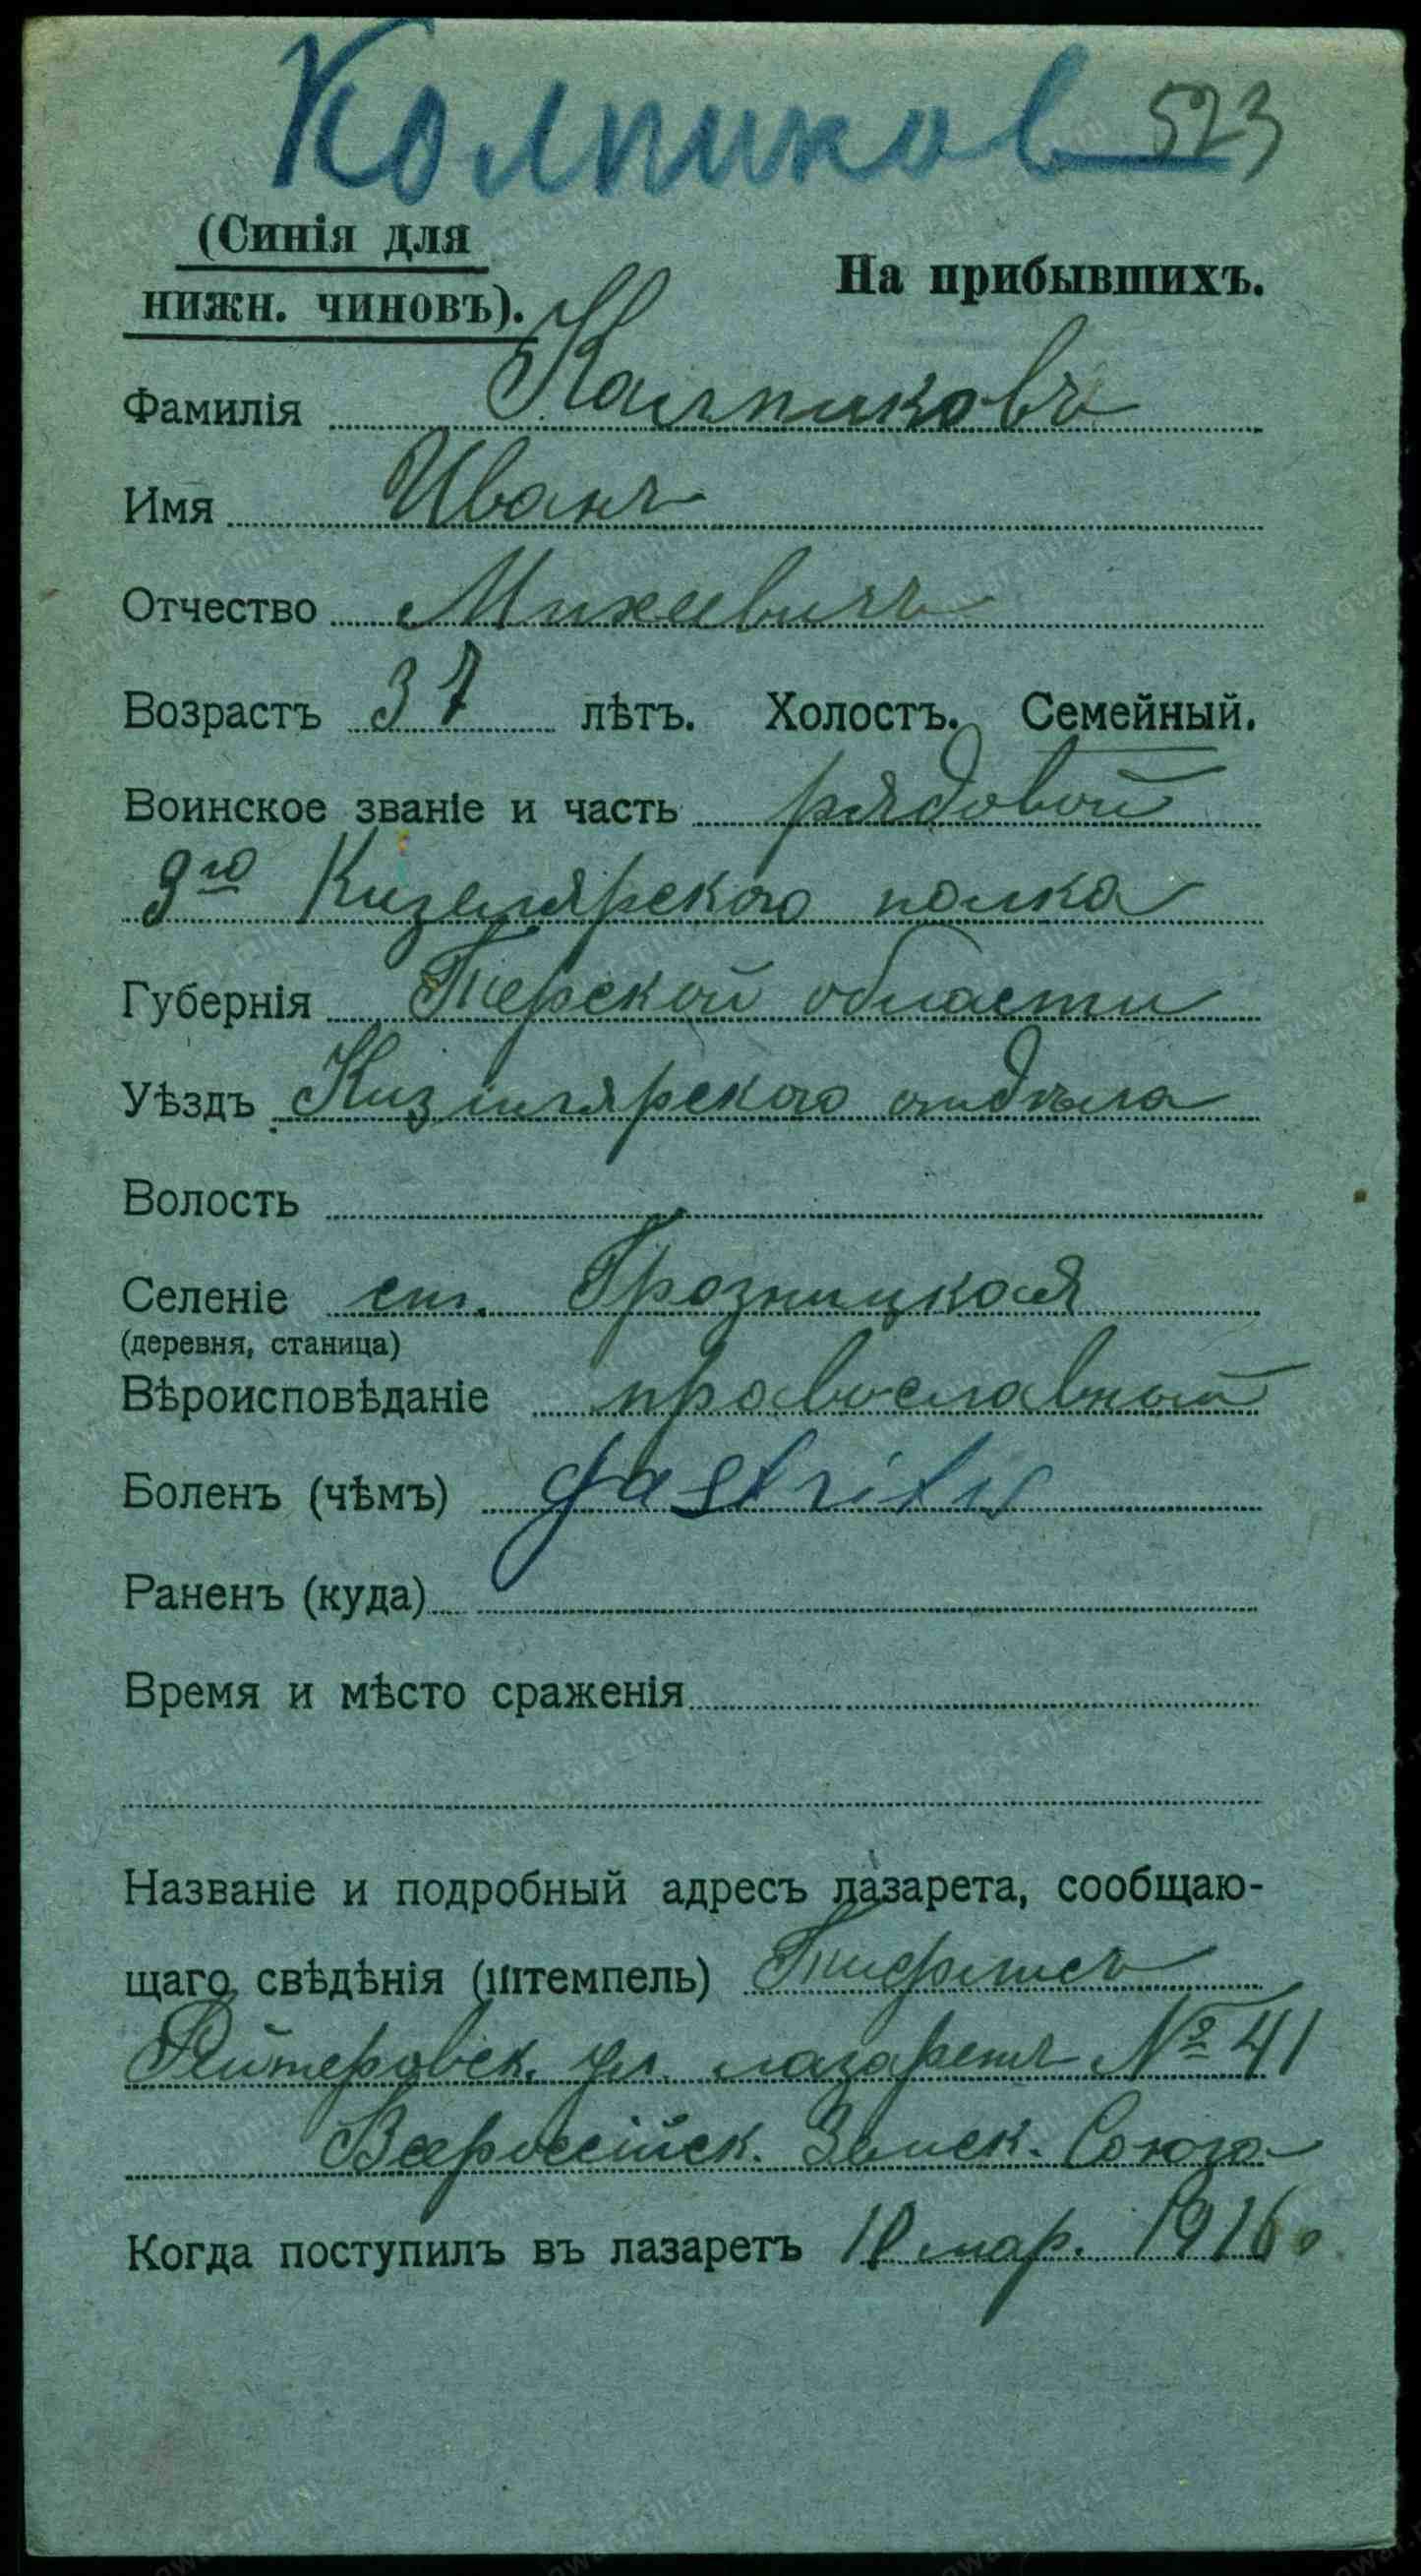 Колпиков 523
(Синія для
нижн. чиновъ).
На прибывшихъ.
Фамилія Калпиковъ
Имя Иванъ
Отчество Михеевичъ
Возрастъ 37 лѣтъ. Холостъ. Семейный.
Воинское званіе и часть рядовой
3го Кизелярского полка
Губернія Терской области
Уѣздъ Кизилярского отдѣла
Волость
Селеніе ст. Грозницкая
(деревня, станица)
Вѣроисповѣданіе православный
Боленъ (чѣмъ) gastritis
Раненъ (куда)
Время и мѣсто сраженія
Названіе и подробный адресъ лазарета, сообщаю-
щаго свѣдѣнія (штемпель) Тифлисъ
Рейтеровск. ул. лазаретъ № 41
Всероссійск. Земск. Союза
Когда поступилъ въ лазаретъ мар. 1916
www.gwar.mil.ru